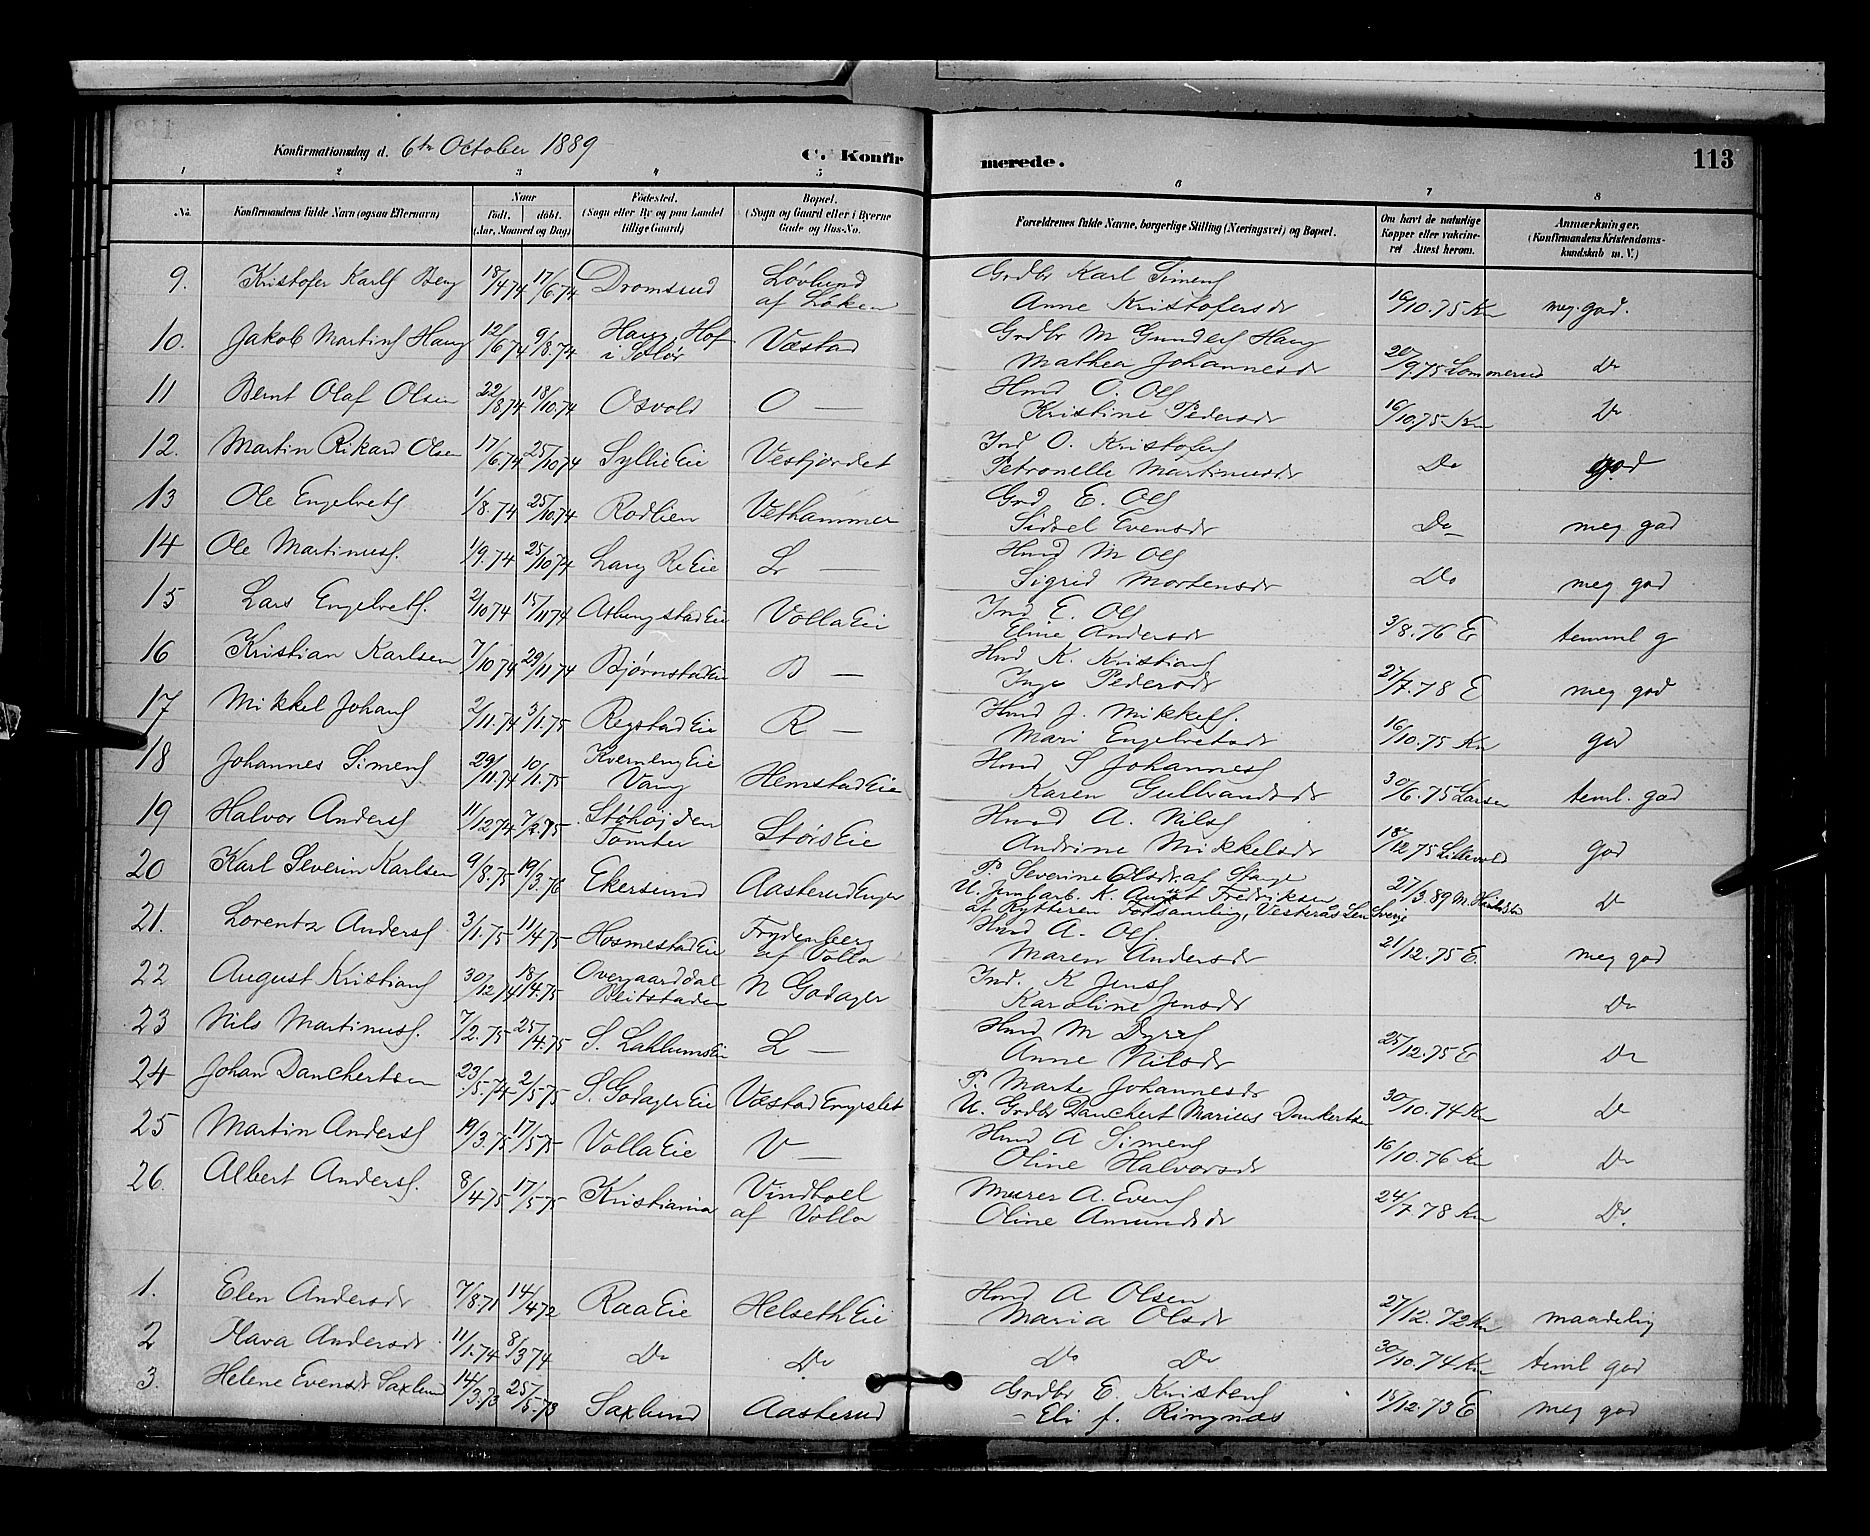 Konfirmationsdag d. 6te October 1889 C. Konfirmerede. 113
1 2 3 4 5 6 7 8
No. Konfirmandens fulde Navn (ogsaa Efternavn) Naar født. døbt. (Aar, Maaned og Dag) Fødested. (Sogn eller By og paa Landet tillige Gaard) Bopæl. (Sogn og Gaard eller i Byerne Gade og Hus-No. Forældrenes fulde Navne, borgerlige Stilling (Næringsvei) og Bopæl. Om havt de naturlige Kopper eller vakcineret Attest herom. Anmærkninger. (Konfirmandens Kristendomskundskab m. V.)
9. Kristofer Karls Berg 18/4 74 17/6.74 Dromsrud Løvlund af Løken Grdbr Karl Simens Anne Kristofersdr 16/10.75 Kn meg. god.
10. Jakob Martins Haug 12/6 74 9/8.74 Haug, Hof i Solør Væstad Grdbr M Gunders Haug Mathea Johannesdr 20/9.75 Lommerud Do
11 Bernt Olaf Olsen 22/8 74 18/10.74 Osvold O — Hmd O. Ols Kristine Pedersdr 16/10.75 Kn Do
12. Martin Rikard Olsen 17/6.74 25/10.74 Syllie Eie Vestjordet Ind O. Kristofers Petronelle Martinusdr Do god
13 Ole Engelrets 1/8.74 25/10.74 Rodlien Vethammer Grd E. Ols Sidsel Evensdr Do meg god
14 Ole Martinuss. 1/9.74 25/10.74 Lang Re Eie L — Hmd M Ols Sigrid Mortensdr Do meg god
15 Lars Engelrets. 2/10 74 15/11 74 Atlungstad Eie Volla Eie Ind E. Ols Eline Andersdr 3/8.76 E temml g
16 Kristian Karlsen 7/10.74 29/11.74 Bjørnstad Eie B — Hmd K. Kristians Inge Pedersdr 27/7.78 E meg god
17 Mikkel Johans 2/11.74 3/1.75 Regstad Eie R — Hmd J. Mikkels. Mari Engelretsdr 16/10.75 Kn god
18 Johannes Simens 29/11.74 10/1.75 Kverneng Eie Vang Hemstad Eie Hmd S Johannes Karen Gulbrandsdr 30/6.75 Larsen teml. god
19 Halvor Anders 11/12 74 7/2.75 Støhøjden Tomter Støis Eie Hmd A. Nils Andrine Mikkelsdr 18/12.75 Lillevold god
20 Karl Severin Karlsen 9/8.75 19/3.76 Ekersund Aasterud Enger P. Severine Olsdr. af Stange U. Jernbarb. K. August Fredriksen af Rytteren Forsamling, Vesterås Len Sverige 27/3.89 M. Do
21. Lorentz Anders 3/1.75 11/4.75 Hosmestad Eie Frydenberg af Volla Hmd A. Ols Maren Andersdr 21/12.75 E. meg god
22 August Kristians 30/12.74 18/4.75 Overgaarddal Reitstaden N Godager Ind. K Jens Karoline Jensdr Do
23 Nils Martinuss. 7/2.75 25/4.75 S. Lahlums Eie L — Hmd M Dyres Anne Nilsdr 25/12.75 E Do
24 Johan Danchertsen 23/5.74 2/5.75 S. Godager Eie Væstad Engeslet P. Marte Johannesdr U. Grdbr Danchert Marius Dankertsen 30/10.74 Kn Do
25 Martin Anders 19/3.75 17/5.75 Volla Eie V — Hmd A Simens Oline Halvorsdr 16/10.76 Kn Do
26. Albert Anders. 8/4.75 17/5.75 Kristiania Vindhoel af Volla Murer A. Evens Oline Amundsdr 24/7.78 Kn Do.
1. Elen Andersdr 7/8.71 14/4 72 Raa Eie Helseth Eie Hmd A Olsen Maria Olsdr 27/12.72 Kn maadelig
2 Mava Andersdr 11/1.74 8/3 74 Do Do Do Do 30/10.74 Kn teml god
3. Helene Evensdr Saxlund 14/3.73 25/5.73 Saxlund Aasterud Grdbr E. Kristens – Eli f. Ringnæs 15/12.73 E meg god